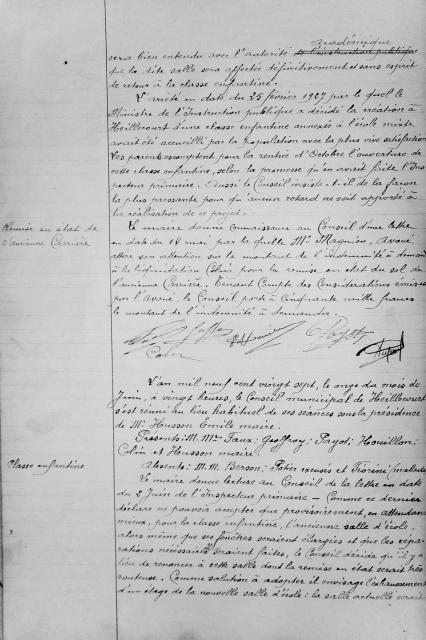 Académique
sera bien entendu avec l'autorité de l'instruction publique
que la dite salle sera affectée définitivement et sans esprit
de retour à la classe enfantine.
L'arrêté en date du 25 février 1927 par lequel le
Ministre de l'Instruction publique a décidé la création à
Heillecourt d'une classe enfantine annexée à l'école mixte
avait été accueilli par la population avec la plus vive satisfaction
Les parents escomptent pour la rentrée d'Octobre l'ouverture de
cette classe enfantine, selon la promesse qu'en avait faite l'Ins
pecteur primaire. Aussi le Conseil insiste-t-il de la façon
la plus pressante pour qu'aucun retard ne soit apporté à
la réalisation de ce projet.
Remise en état de
l'ancienne Carrière
Le maire donne connaissance au Conseil d'une lettre
en date du 18 mai par laquelle Me Magnien, Avoué,
attire son attention sur le montant de l'indemnité à demander
à la liquidation Colin pour la remise en état du sol de
l'ancienne Carrière. Tenant Compte des Considérations émises
par l'Avoué, le Conseil porte à Cinquante mille francs
le montant de l'indemnité à demander.
Payot
Colin
L'an mil neuf cent vingt sept, le onze du mois de
Juin, à vingt heures, le Conseil municipal de Heillecourt
s'est réuni au lieu habituel de ses séances sous la présidence
de Mr Husson Emile maire.
Présents: M. Mrs Geoffroy; Payot; Houillon;
Colin et Husson maire.
Absents: M. M. Berson; excusés et malade
Classe enfantine
Le maire donne lecture au Conseil de la lettre en date
du 2 Juin de l'Inspecteur primaire - Comme ce dernier
déclare ne pouvoir accepter que provisoirement, en attendant
mieux, pour la classe enfantine, l'ancienne salle d'école,
alors même que ses fenêtres seraient élargies et que les répa-
rations nécessaires seraient faites, le Conseil décide qu'il y a
lieu de renoncer à cette salle dont la remise en état serait très
coûteuse. Comme solution à adopter il envisage l'exhaussement
d'un étage de la nouvelle salle d'école: la salle actuelle serait